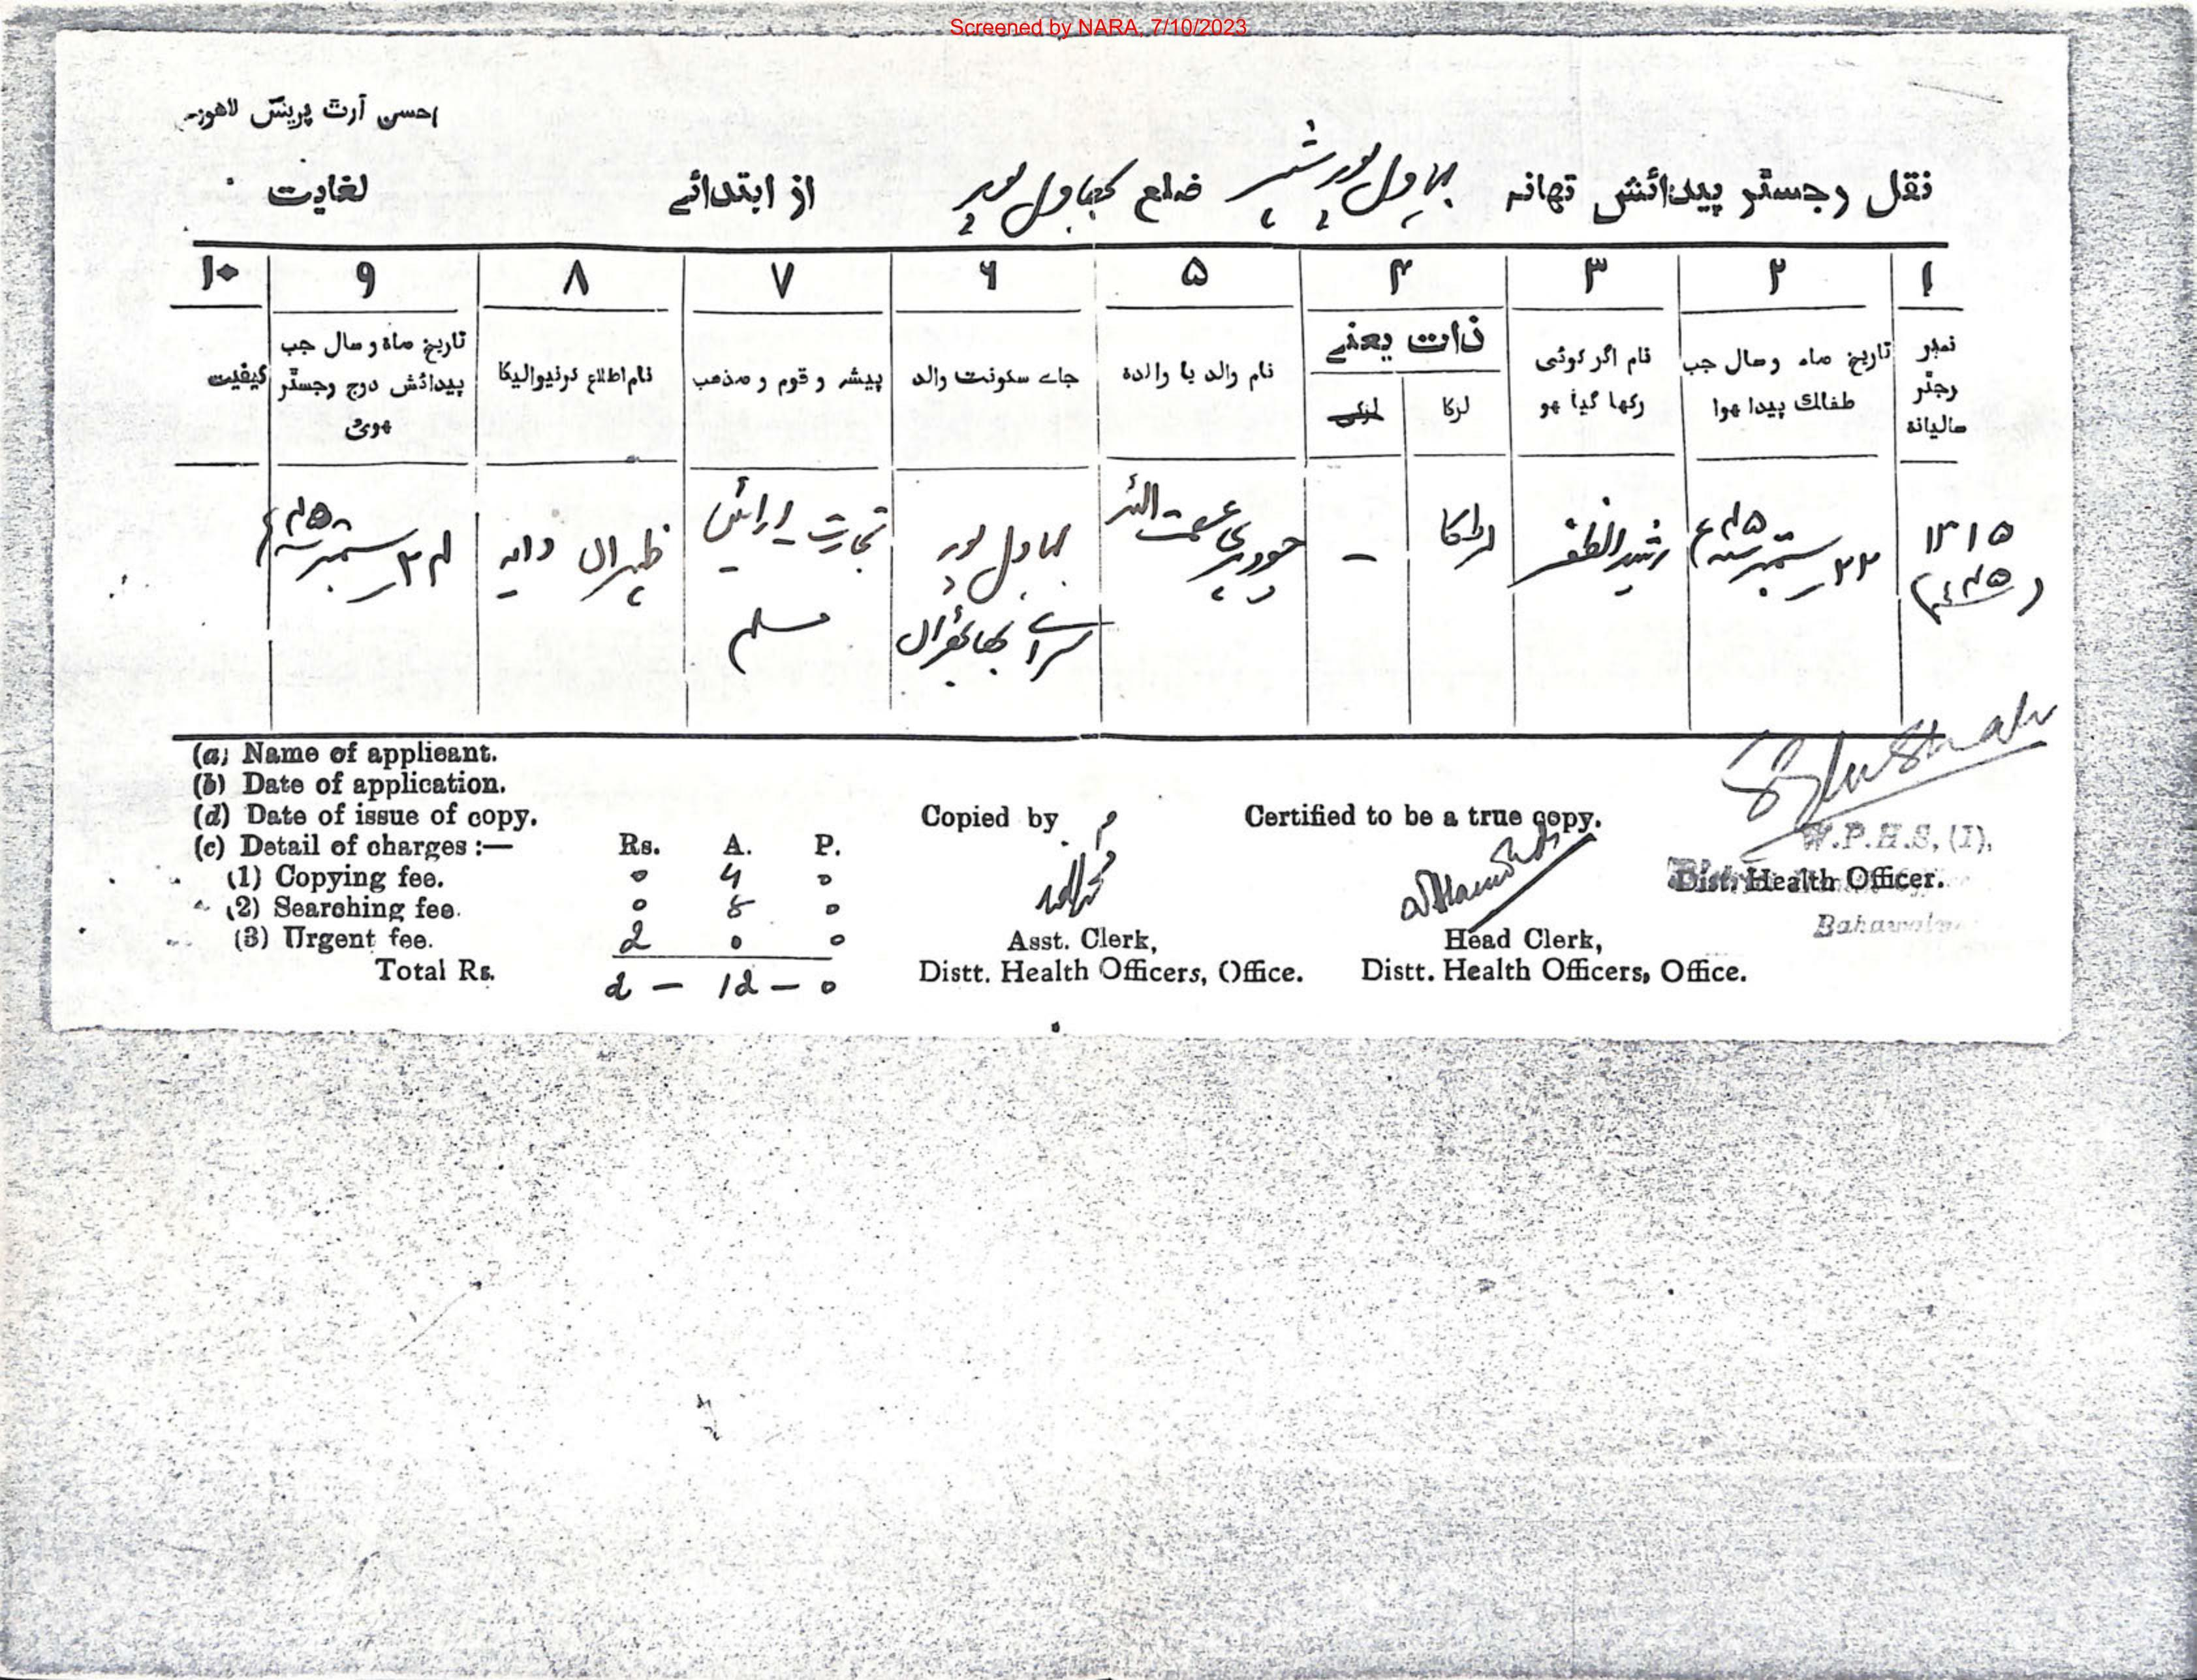 Screened by NARA, 7/10/2023
احسن آرٹ پریس لاهور
نقل رجسٹر پیدائش تھانہ بہاول پور شہر ضلع بہاول پور از ابتدائے لغایت
۱ ۲ ۳ ۴ ۵ ۶ ۷ ۸ ۹ ۱۰
نمبر رجٹر سالیانہ
تاریخ ماہ و سال جب طفلک پیدا ہوا
نام اگر کوئی رکھا گیا ہو
ذات یعنے
لڑکا
لڑکی
نام والد یا والدہ
جاے سکونت والد
پیشہ و قوم و مذهب
نام اطلاع کرنیوالیکا
تاریخ ماہ و سال جب پیدائش درج رجسٹر ہوئی
کیفیت
۲۲ ستمبر
رشید الظفر
لڑکا
-
چوہدری عصمت اللہ
بہاول پور
سرائے
تجارت ارائیں
مسلم
دایہ
ستمبر
(a) Name of applicant.
(b) Date of application.
(d) Date of issue of copy.
(c) Detail of charges :— Rs. A. P.
(1) Copying fee. 0 4 0
(2) Searching fee. 0 8 0
(3) Urgent fee. 2 0 0
Total Rs. 2 - 12 - 0
Copied by
Asst. Clerk,
Distt. Health Officers, Office.
Certified to be a true copy.
Head Clerk,
Distt. Health Officers, Office.
W.P.H.S, (I),
Dist. Health Officer.